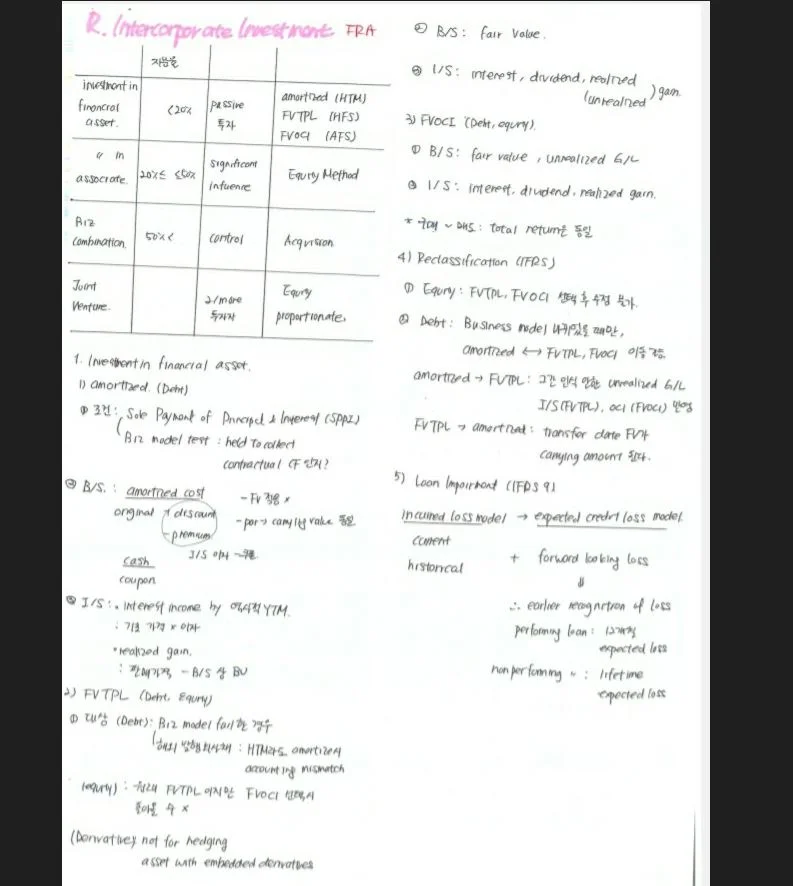 R. Intercorporate Investment FRA
지분율
investment in financial asset. <20% passive 투자 amortized (HTM) FVTPL (HFS) FVOCI (AFS)
〃 in associate. 20%≤ ≤50% significant influence Equity Method
Biz Combination. 50%< control Acquisition
Joint Venture. 2/more 투자자 Equity proportionate.
1. Investment in financial asset.
1) amortized. (Debt)
① 조건: Sole Payment of Principal & Interest (SPPI)
Biz model test : held to collect
contractual CF 인지?
② B/S. : amortized cost - FV 적용 ×
original + discount - par → carrying value 동일
- premium
cash I/S 이자
coupon
③ I/S : • interest income by 역사적 YTM.
: 기초 가격 × 이자
• realized gain.
: 판매가격 - B/S 상 BV
2) FVTPL (Debt, Equity)
① 대상 (Debt): Biz model fail한 경우
해외 발행 회사채 : HTM라도 amortize시
accounting mismatch
(equity) : 원래 FVTPL 이지만 FVOCI 선택시
돌아올 수 ×
(Derivative) not for hedging
asset with embedded derivatives
② B/S : fair value.
③ I/S : interest, dividend, realized
(unrealized) gain.
3) FVOCI (Debt, equity).
① B/S : fair value, unrealized G/L
② I/S : interest, dividend, realized gain.
* : total return은 동일
4) Reclassification (IFRS)
① Equity : FVTPL, FVOCI 선택 후 수정 불가.
② Debt : Business model 바뀌었을 때만,
amortized ↔ FVTPL, FVOCI 이동 가능.
amortized → FVTPL : 그간 인식 안한 unrealized G/L
I/S (FVTPL), OCI (FVOCI) 반영
FVTPL → amortized : transfer date FV가
carrying amount 된다.
5) Loan Impairment (IFRS 9)
incurred loss model → expected credit loss model
current
historical + forward looking loss
⇓
∴ earlier recognition of loss
performing loan : 12개월
expected loss
nonperforming 〃 : lifetime
expected loss